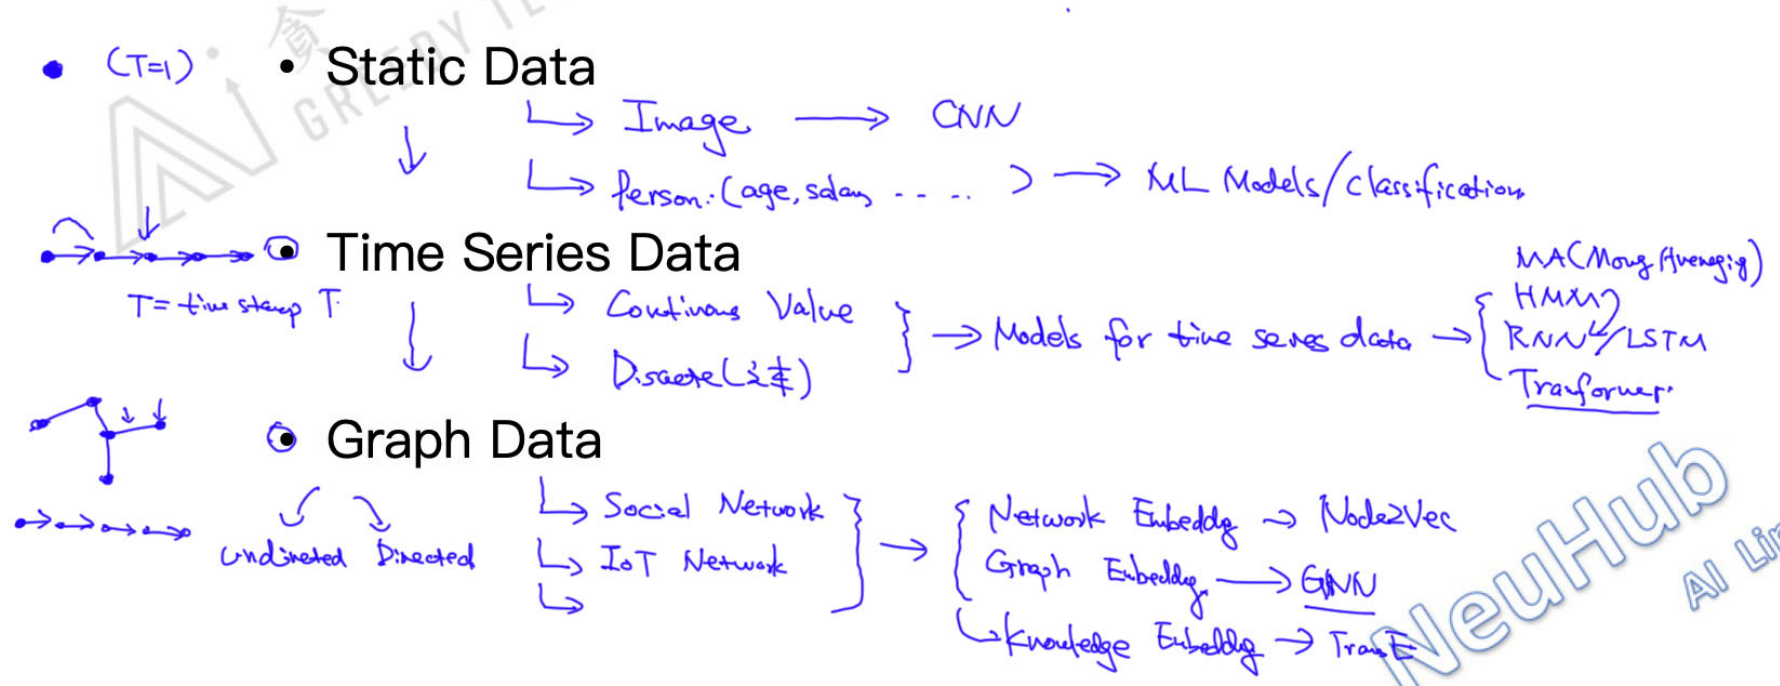 (T=1)
• Static Data
Image → CNN
Person: (age, salary ----.. ) → ML Models/classification
• Time Series Data
T = time stamp T
Continous Value
Discrete(文本)
→ Models for time series data →
MA(Moving Averaging)
HMM
RNN/LSTM
Tranformer
• Graph Data
undirected Directed
Social Network
IoT Network
Network Embeddg → Node2Vec
Graph Embeddg → GNN
Knowledge Embeddg → TransE
GREEDY TE
NeuHub
AI Lin